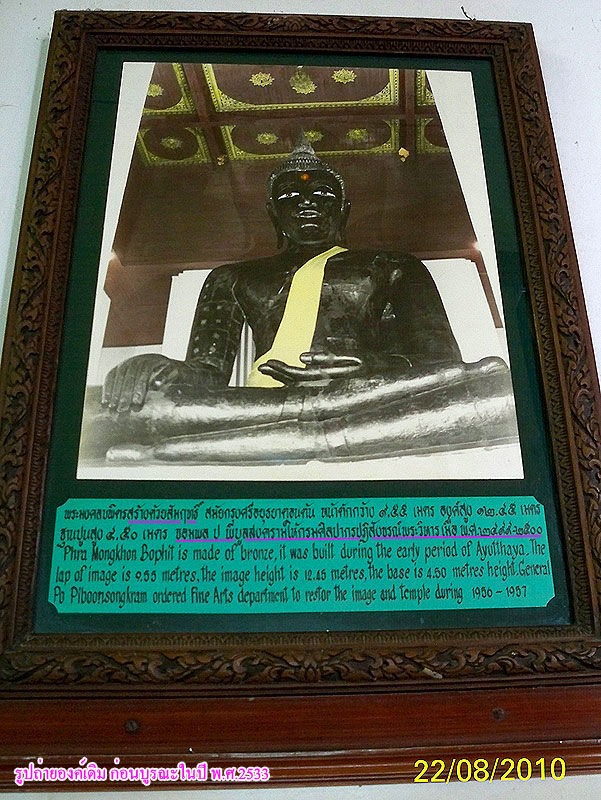 พระมงคลบพิตรสร้างด้วยสัมฤทธิ์ สมัยกรุงศรีอยุธยาตอนต้น หน้าตักกว้าง ๙.๕๕ เมตร องค์สูง ๑๒.๔๕ เมตร
ฐานปูนสูง ๔.๕๐ เมตร จอมพล ป พิบูลสงครามได้กรมศิลปากรปฏิสังขรณ์พระวิหารเมื่อ พ.ศ.๒๔๙๙-๒๕๐๐
Phra Mongkhon Bophit is made of bronze, it was built during the early period of Ayutthaya. The
lap of image is 9.55 metres. the image height is 12.45 metres, the base is 4.50 metres height. General
Po Piboonsongkram ordered Fine Arts department to restor the image and temple during 1956 - 1957
รูปถ่ายองค์เดิม ก่อนบูรณะในปี พ.ศ.2533
22/08/2010